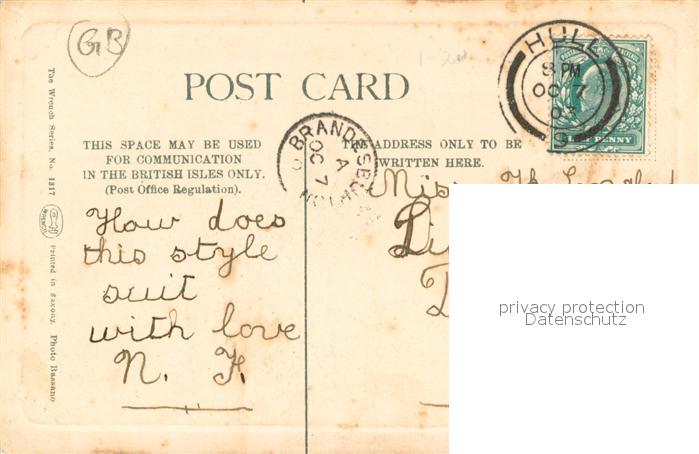 GB
HULL
8 PM
OC 7
07
9
POST CARD
BRANDESBURTON
A
OC 7
THIS SPACE MAY BE USED
FOR COMMUNICATION
IN THE BRITISH ISLES ONLY.
(Post Office Regulation).
THE ADDRESS ONLY TO BE
WRITTEN HERE.
PENNY
Miss
How does
this style
suit
with love
N. F.
The Wrench Series, No. 1317
Printed in Saxony. Photo Bassano
privacy protection
Datenschutz